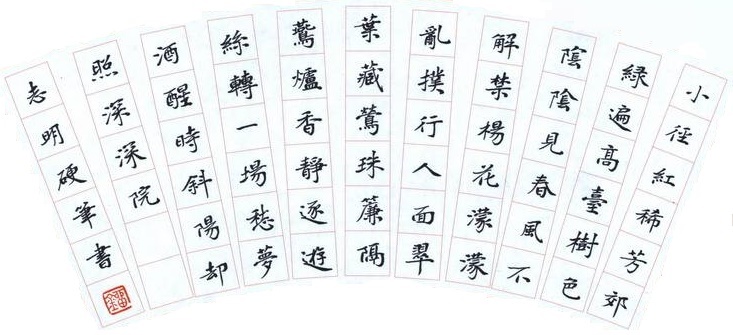 小徑紅稀芳郊
緑遍高臺樹色
陰陰見春風不
解禁楊花濛濛
亂撲行人面翠
葉藏鶯珠簾隔
鷰爐香靜逐遊
絲轉一場愁夢
酒醒時斜陽却
照深深院
志明硬筆書